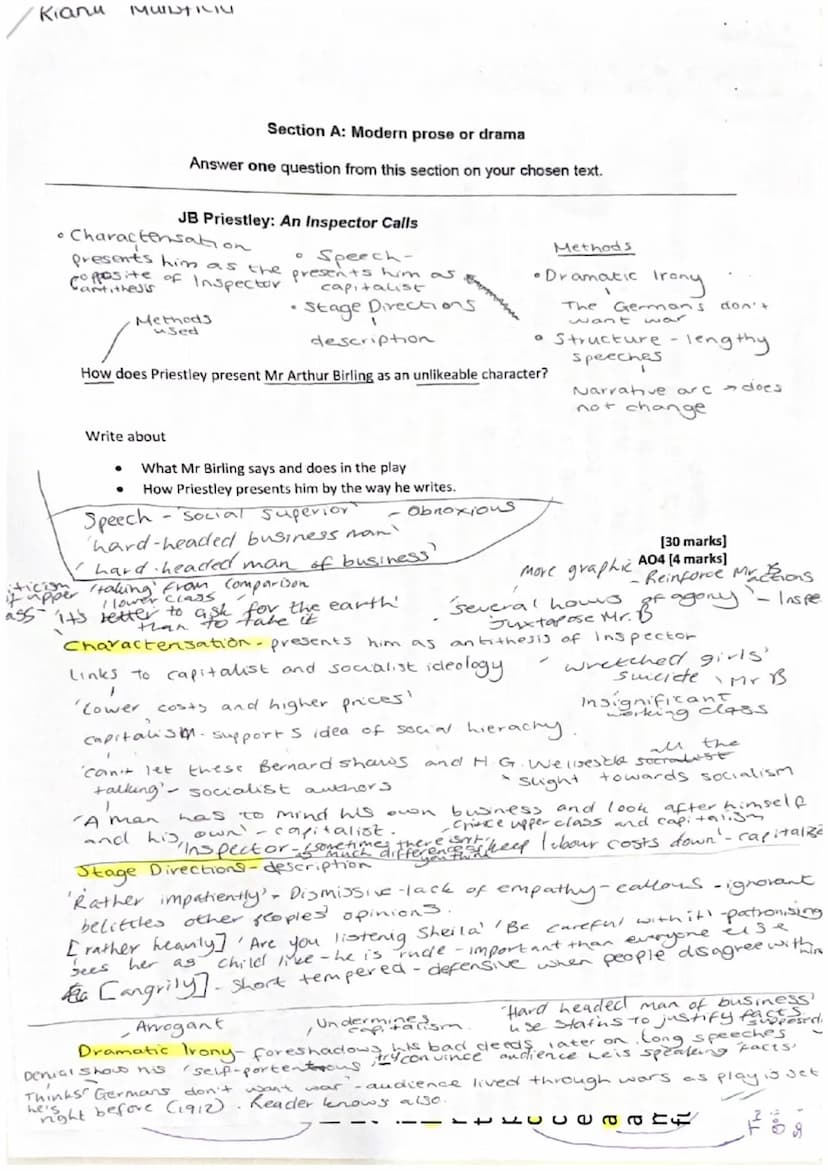 Kianu
Section A: Modern prose or drama
Answer one question from this section on your chosen text.
JB Priestley: An Inspector Calls
• Characterisation
presents him as the
opposite of Inspector
(antithesis
• Speech -
presents him as
capitalist
• Stage Directions
description
Methods
used
Methods
• Dramatic Irony
The German's don't
want war
• Structure - lengthy
speeches
Narrative arc → does
not change
How does Priestley present Mr Arthur Birling as an unlikeable character?
Write about
• What Mr Birling says and does in the play
• How Priestley presents him by the way he writes.
Speech - 'social superior' - Obnoxious
'hard-headed business man'
'hard-headed man of business'
[30 marks]
AO4 [4 marks]
more graphic - Reinforce Mr B's
actions
'taking' from comparison
lower class
'its better to ask for the earth'
than to take it
'several hours of agony' - Inspe
Juxtapose Mr. B
Characterisation - presents him as antithesis of Inspector
Links to capitalist and socialist ideology
'wretched girls'
suicide' Mr B
'Lower costs and higher prices'
Insignificant
working class
capitalism - supports idea of social hierachy.
'can't let these Bernard shaws and H.G. Wellses do all the
talking' - socialist authors
slight towards socialism
'A man has to mind his own business and look after himself
and his own' - capitalist.
upper class and capitalism
'Inspector - (sometimes there isn't
as much difference
you think
'keep labour costs down' - capitalize
Stage Directions - description
'Rather impatiently' - Dismissive - lack of empathy - callous - ignorant
belittles other peoples opinions.
[rather heavily] 'Are you listenig Sheila' 'Be careful with it' - patronising
sees her as child like - he is rude - important than everyone else
[angrily] - short tempered - defensive when people disagree with him
Arrogant
Undermines
capitalism.
'Hard headed man of business'
use status to justify facts
Dramatic Irony - foreshadows his bad deeds later on. Long speeches
Denial shows his 'self-portentous' try convince audience he is speaking 'facts'
Thinks
he's
'Germans don't want war' - audience lived through wars as play is set
right before (1912). Reader knows also.